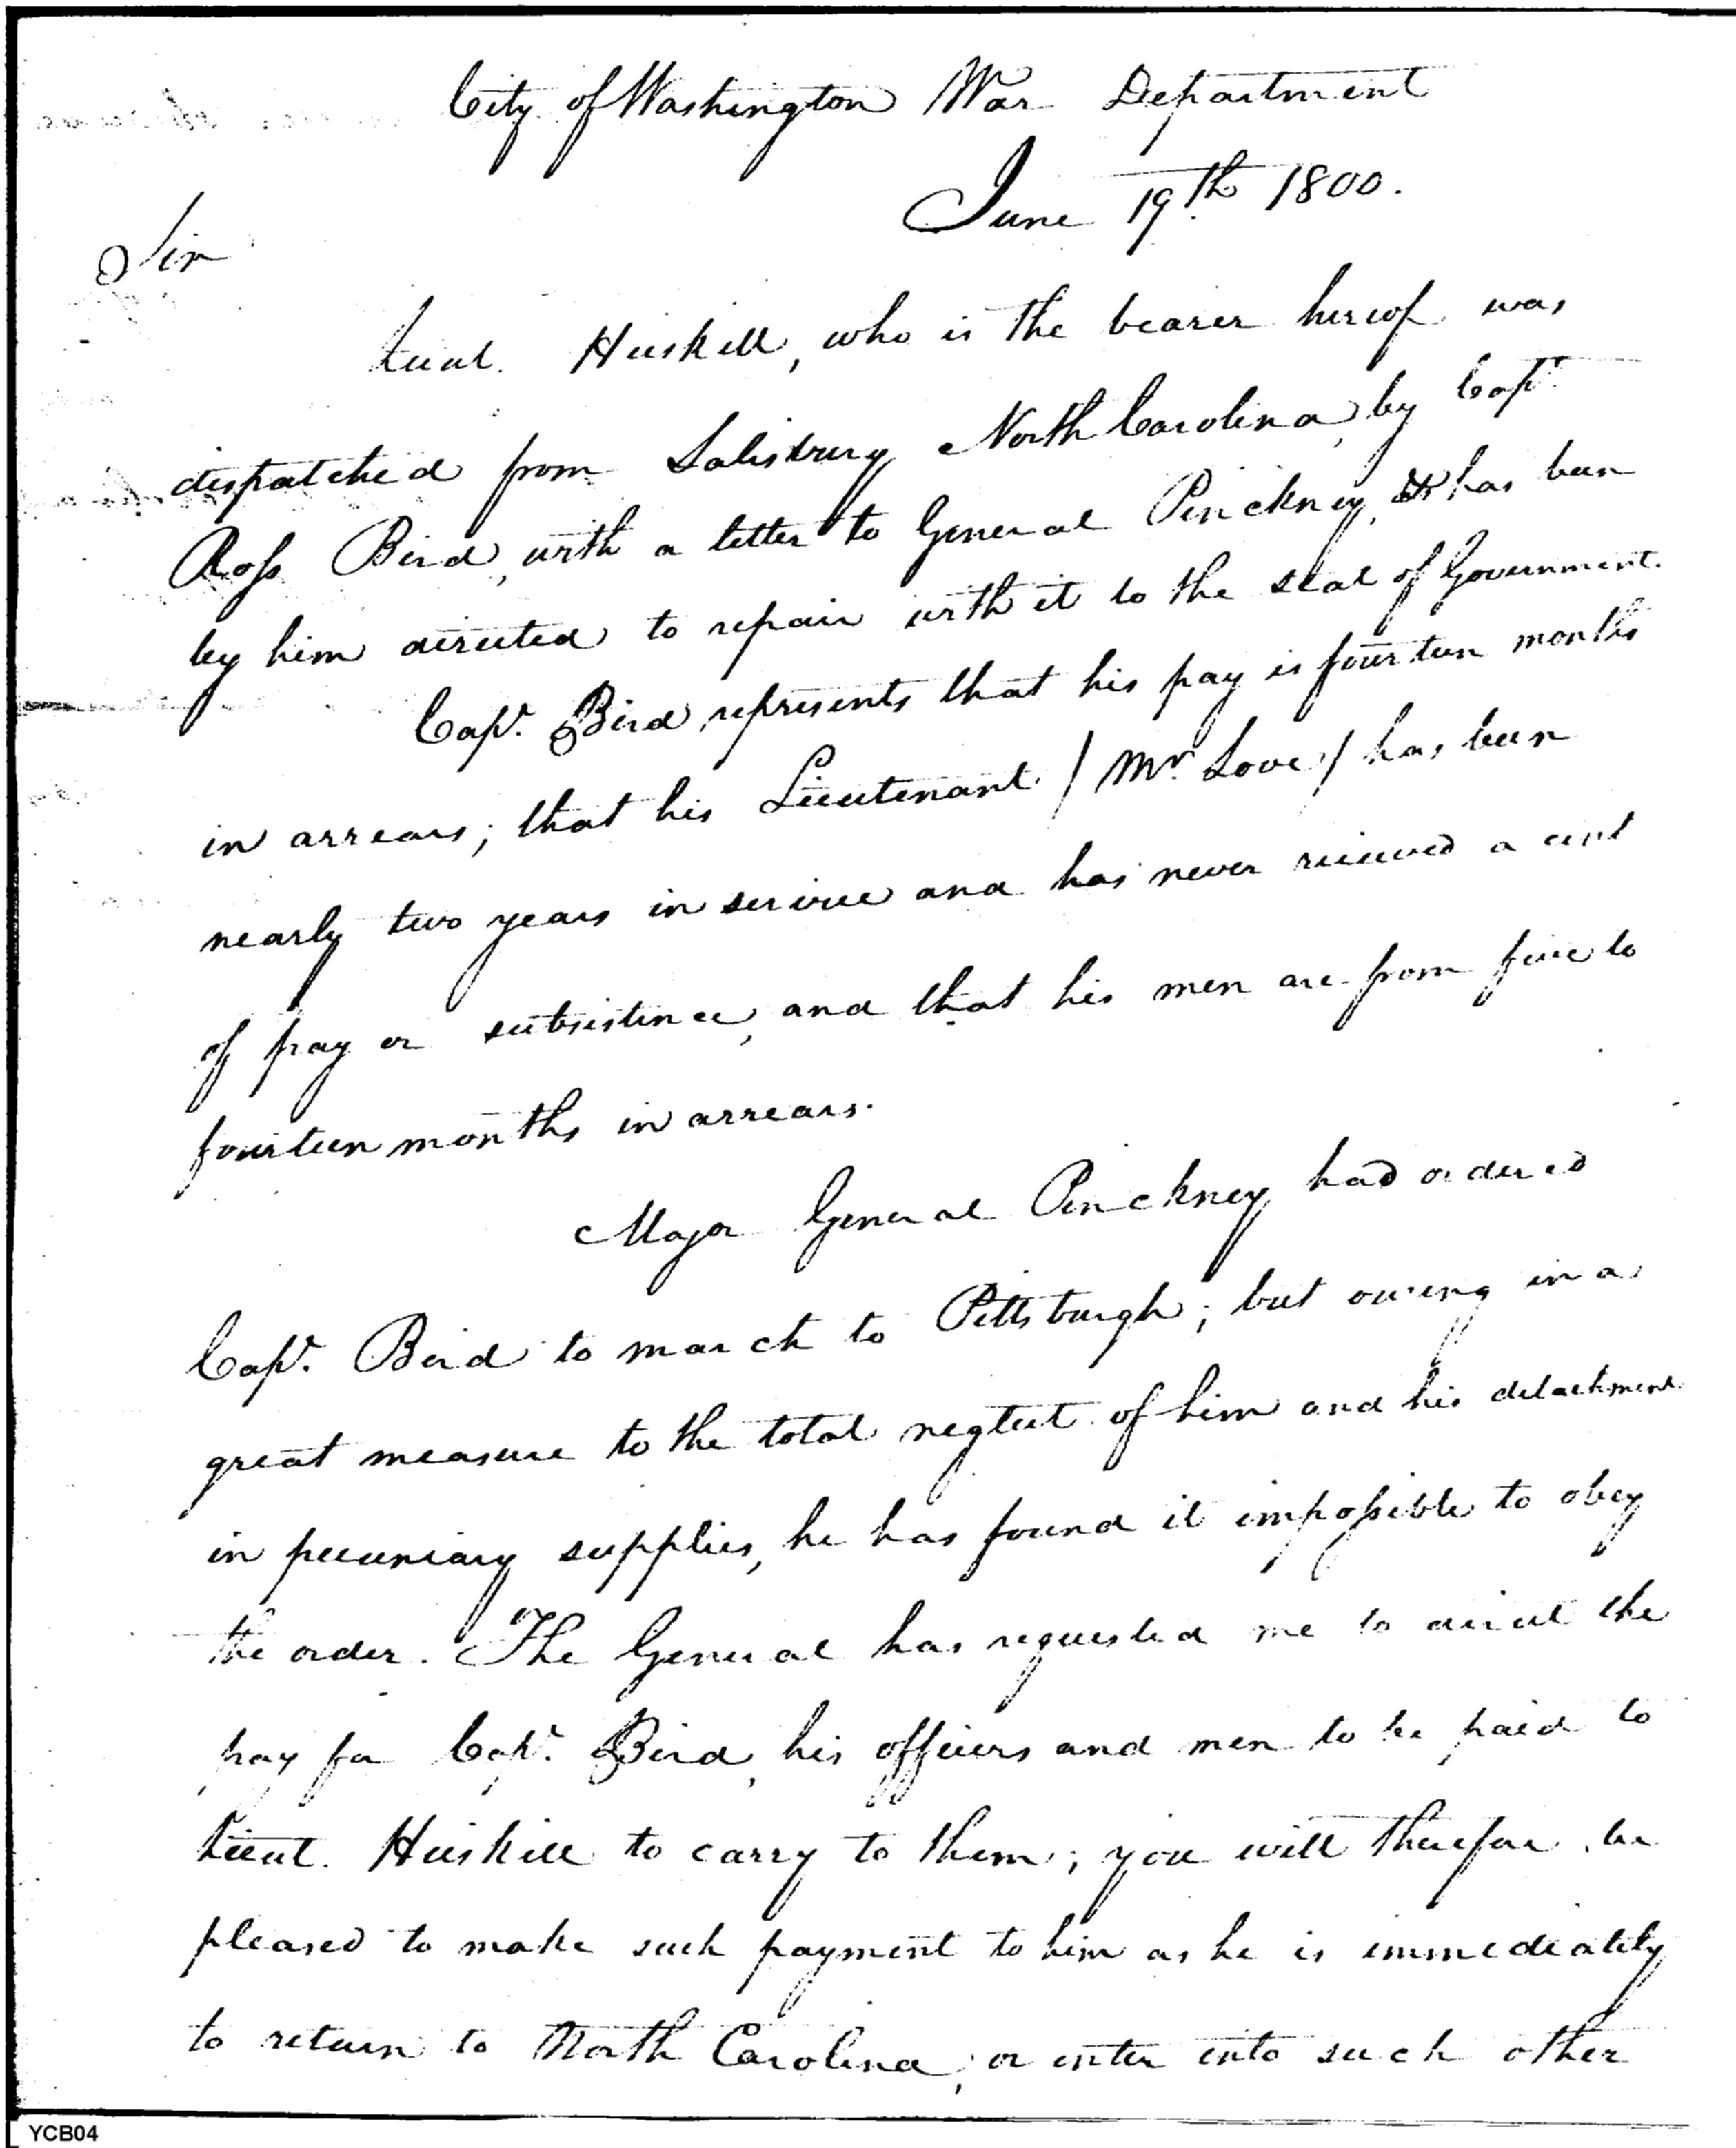 City of Washington War Department
June 19th 1800.
Sir
Lieut. Huskill, who is the bearer hereof was
dispatched from Salisbury North Carolina, by Capt.
Ross Bird, with a letter to General Pinckney, & has been
by him directed to repair with it to the seat of Government.
Capt. Bird represents that his pay is fourteen months
in arrears; that his Lieutenant / Mr. Love / has been
nearly two years in service and has never received a cent
of pay or subsistence, and that his men are from five to
fourteen months in arrears.
Major General Pinckney had ordered
Capt. Bird to march to Pittsburgh; but owing in a
great measure to the total neglect of him and his detachment
in pecuniary supplies, he has found it impossible to obey
the order. The General has requested me to direct the
pay for Capt. Bird, his officers and men to be paid to
Lieut. Huskill to carry to them; you will therefore be
pleased to make such payment to him as he is immediately
to return to North Carolina, or enter into such other
YCB04